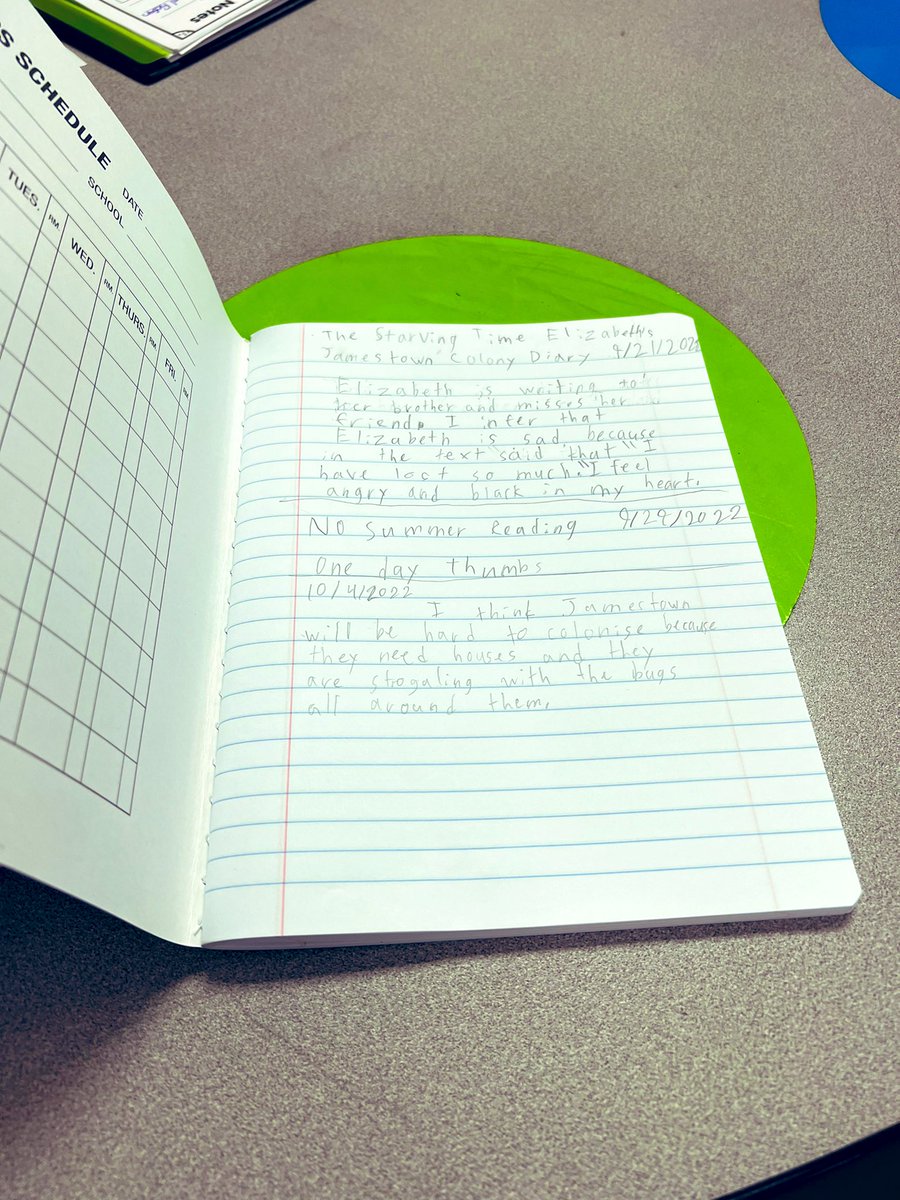 Notes
S SCHEDULE
DATE
SCHOOL
TUES. RM WED. RM THURS. RM FRI. RM
The Starving Time Elizabeths
Jamestown Colony Diary 9/21/2022
Elizabeth is writing to
her brother and misses her
friend. I infer that
Elizabeth is sad because
in the text said that "I
have lost so much". "I feel
angry and black in my heart.
No Summer Reading 9/29/2022
One day thumbs
10/4/2022
I think Jamestown
will be hard to colonise because
they need houses and they
are strogaling with the bugs
all around them.